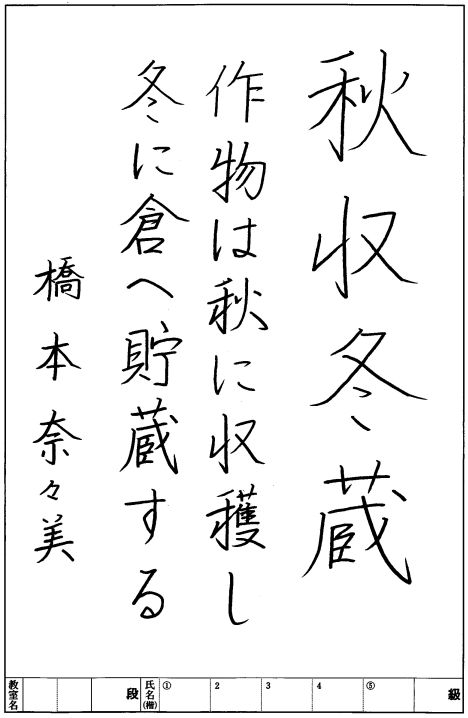 秋収冬蔵
作物は秋に収穫し
冬に倉へ貯蔵する
橋本奈々美
教室名 段 氏名(楷) ① 2 3 4 ⑤ 級